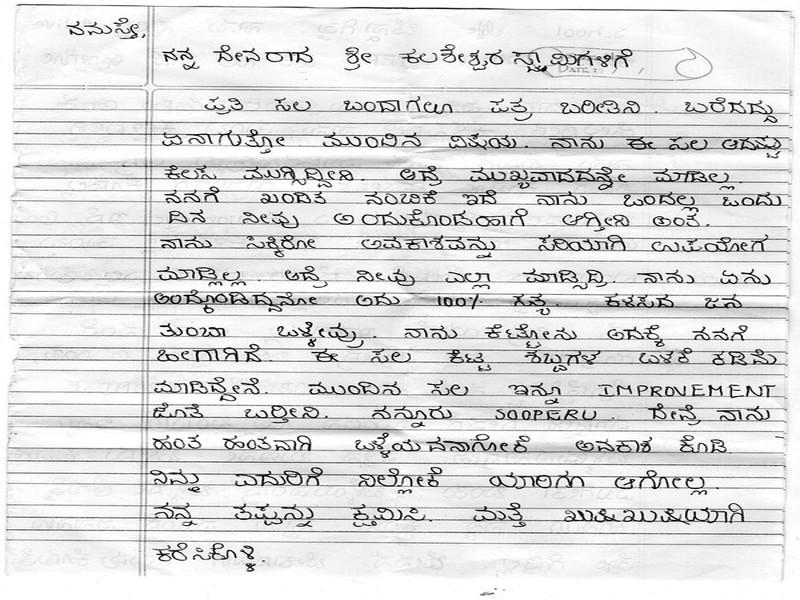 ನಮಸ್ತೇ,
ನನ್ನ ದೇವರಾದ ಶ್ರೀ ಕಲಶೇಶ್ವರ ಸ್ವಾಮಿಗಳಿಗೆ,
DATE:
ಪ್ರತಿ ಸಲ ಬಂದಾಗಲೂ ಪತ್ರ ಬರೀತಿನಿ. ಬರೆದದ್ದು
ಏನಾಗುತ್ತೋ ಮುಂದಿನ ವಿಷಯ. ನಾನು ಈ ಸಲ ಆದಷ್ಟು
ಕೆಲಸ ಮುಗ್ಸಿದ್ದೀನಿ. ಆದ್ರೆ ಮುಖ್ಯವಾದದನ್ನೇ ಮಾಡಿಲ್ಲ.
ನನಗೆ ಖಂಡಿತ ನಂಬಿಕೆ ಇದೆ ನಾನು ಒಂದಲ್ಲ ಒಂದು
ದಿನ ನೀವು ಅಂದುಕೊಂಡಹಾಗೆ ಆಗ್ತೀನಿ ಅಂತ.
ನಾನು ಸಿಕ್ಕಿರೋ ಅವಕಾಶವನ್ನು ಸರಿಯಾಗಿ ಉಪಯೋಗ
ಮಾಡ್ಲಿಲ್ಲ. ಆದ್ರೆ ನೀವು ಎಲ್ಲಾ ಮಾಡ್ಸಿದ್ರಿ. ನಾನು ಏನು
ಅಂದ್ಕೊಂಡಿದ್ದನೋ ಅದು 100% ಸತ್ಯ. ಕಳಸದ ಜನ
ತುಂಬಾ ಒಳ್ಳೇವ್ರು. ನಾನು ಕೆಟ್ಟೋನು ಅದಕ್ಕೆ ನನಗೆ
ಹೀಗಾಗಿದೆ. ಈ ಸಲ ಕೆಟ್ಟ ಶಬ್ದಗಳ ಬಳಕೆ ಕಡಿಮೆ
ಮಾಡಿದ್ದೇನೆ. ಮುಂದಿನ ಸಲ ಇನ್ನೂ IMPROVEMENT
ಜೊತೆ ಬರ್ತೀನಿ. ನನ್ನೂರು SOOPERU. ದೇವ್ರೆ ನಾನು
ಹಂತ ಹಂತವಾಗಿ ಒಳ್ಳೆಯವನಾಗೋಕೆ ಅವಕಾಶ ಕೊಡಿ.
ನಿಮ್ಮ ಎದುರಿಗೆ ನಿಲ್ಲೋಕೆ ಯಾರಿಗೂ ಆಗೋಲ್ಲ.
ನನ್ನ ತಪ್ಪನ್ನು ಕ್ಷಮಿಸಿ. ಮತ್ತೆ ಖುಷಿಖುಷಿಯಾಗಿ
ಕರೆಸಿಕೊಳ್ಳಿ.